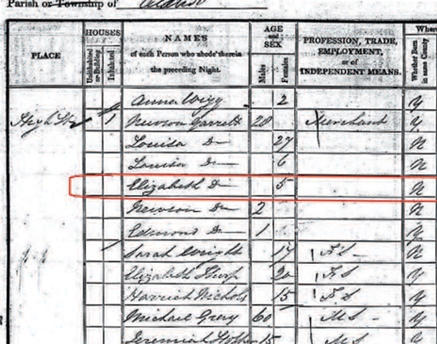 Parish or Township of
PLACE
HOUSES
Uninhabited or Building
Inhabited
NAMES
of each Person who abode therein
the preceding Night.
AGE
and
SEX
Males
Females
PROFESSION, TRADE,
EMPLOYMENT,
or of
INDEPENDENT MEANS.
Whether Born in same County
Anna 2 y
High St 1 Newson Garrett 28 Merchant y
Louisa Do 27 N
Louisa Do 6 N
Elizabeth Do 5 N
Newson Do 2 y
Edmund Do 1 y
Sarah Wright 17 F S N
Elizabeth Thorp 20 F S y
Harriet Nichols 15 F S y
Michael Gray 60 M S y
Jeremiah 15 M S y